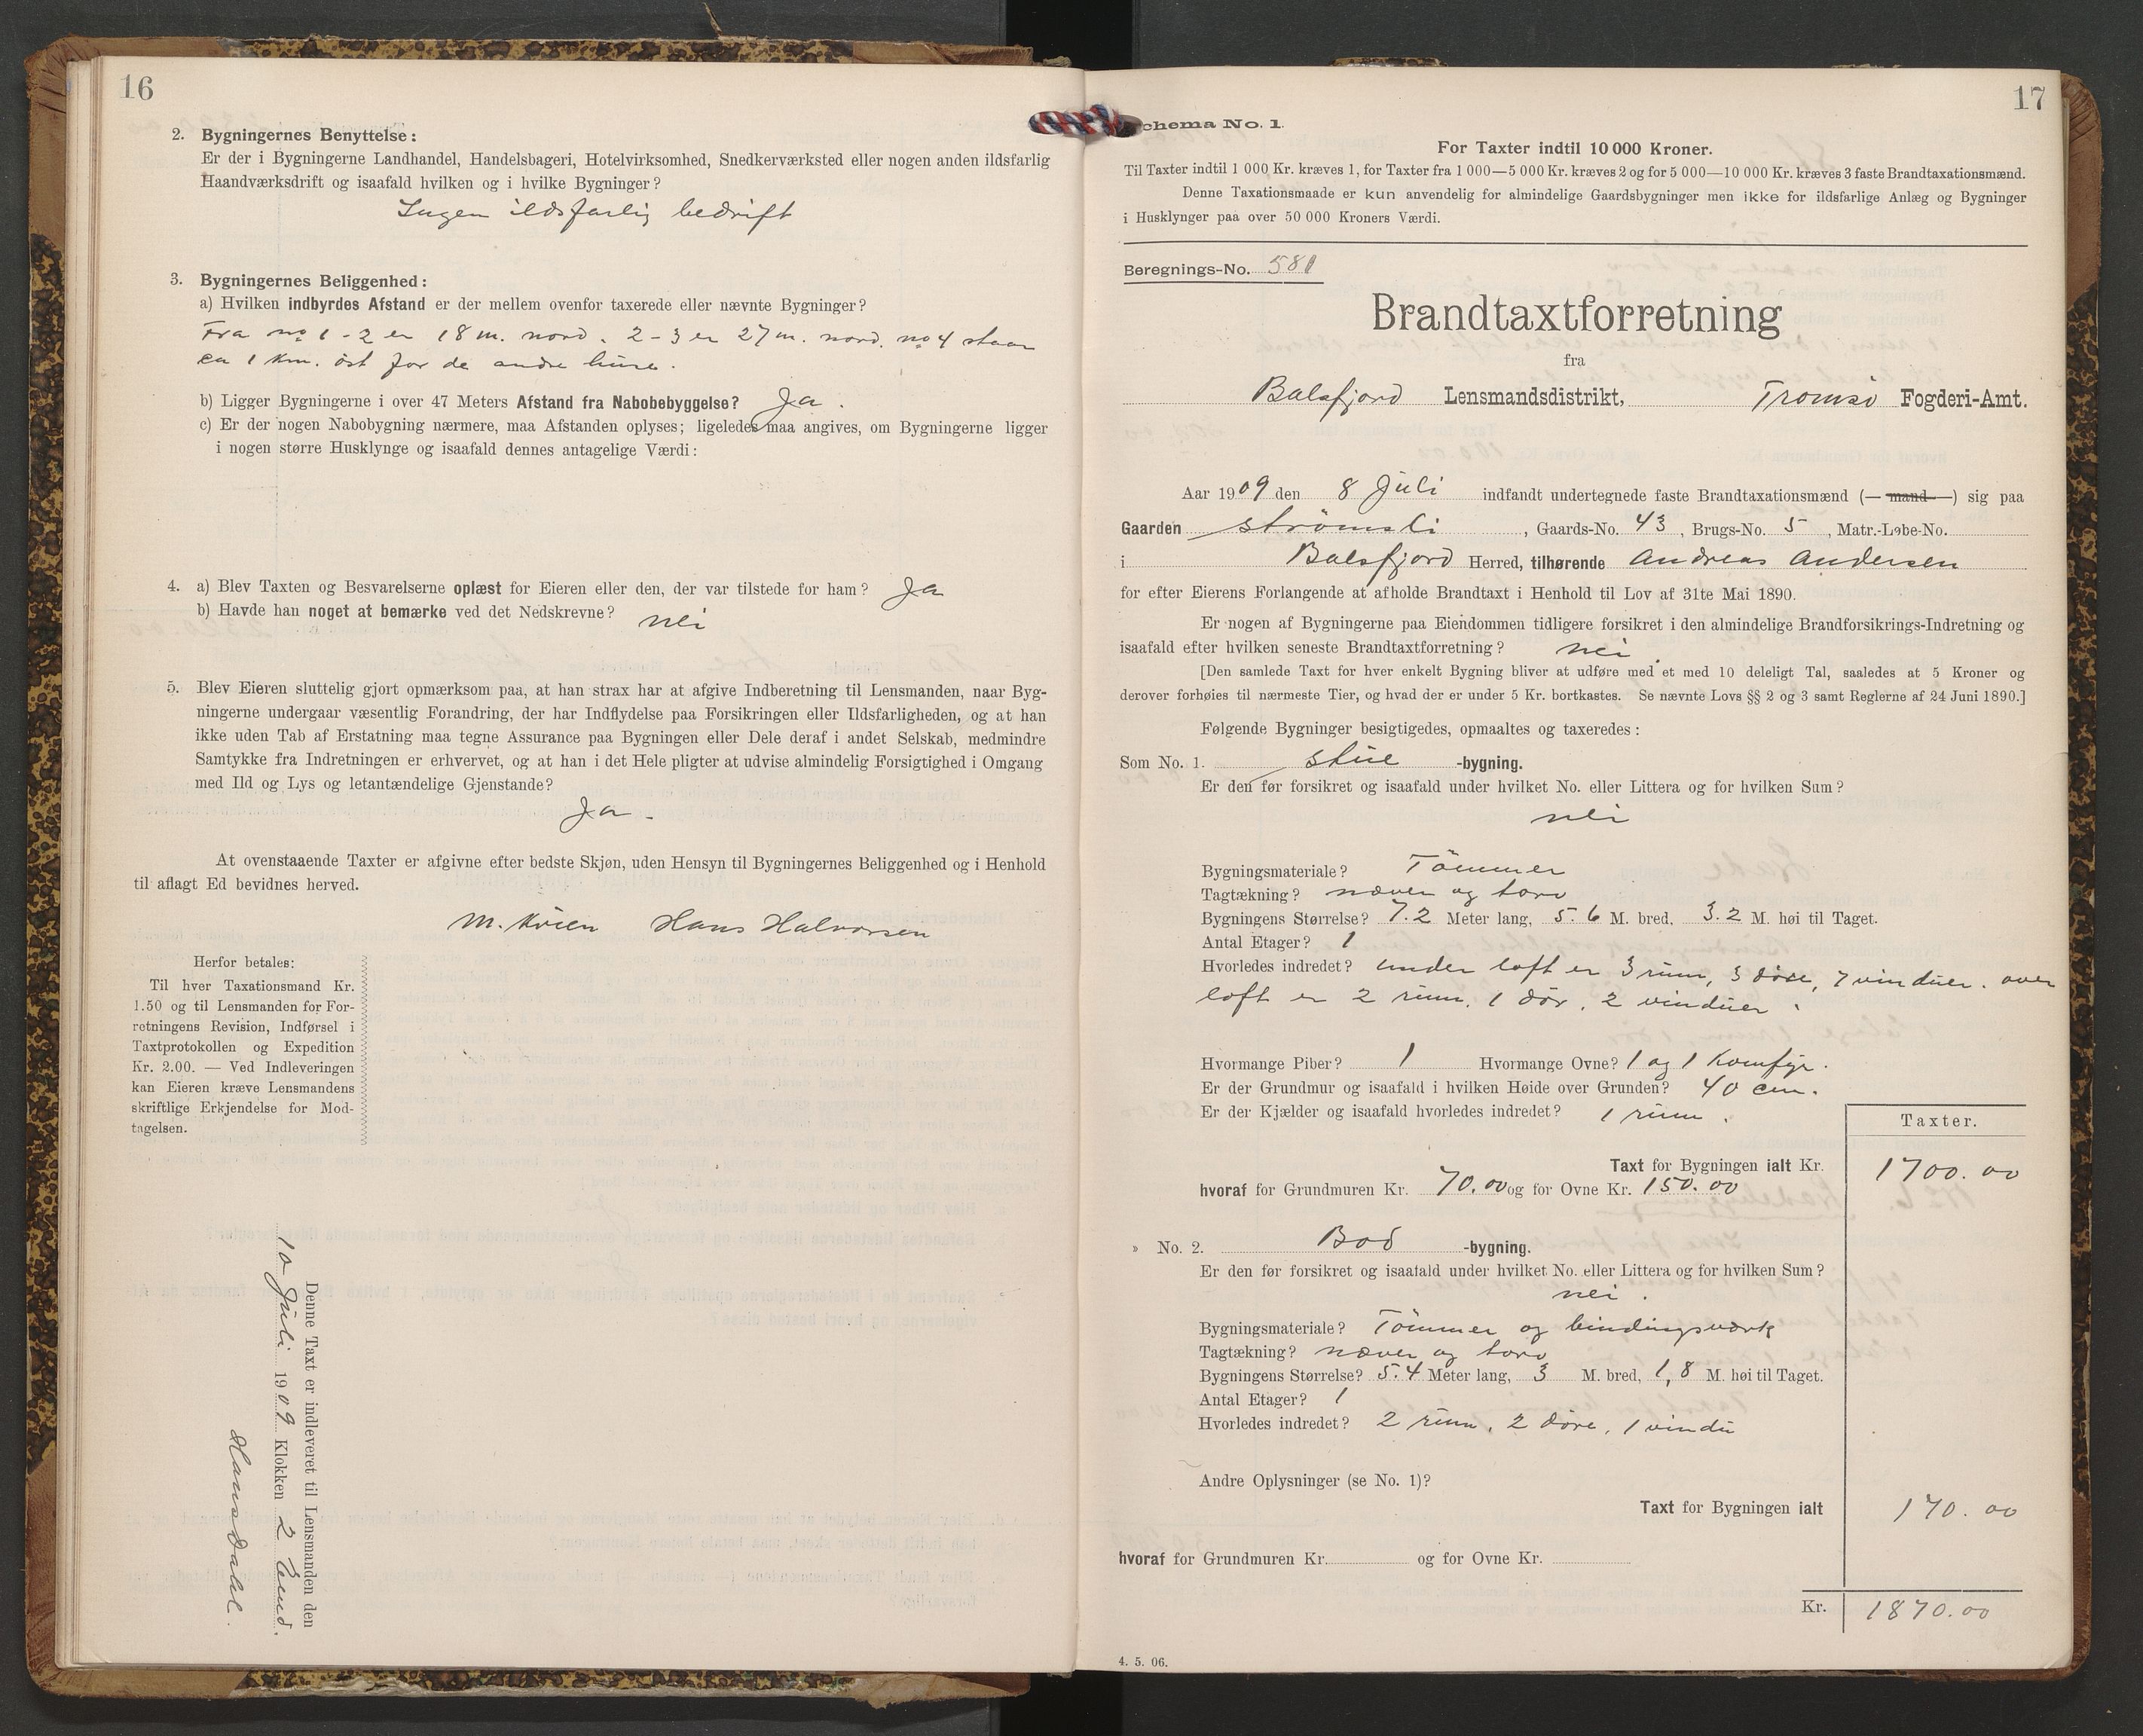 16
2. Bygningernes Benyttelse:
Er der i Bygningerne Landhandel, Handelsbageri, Hotelvirksomhed, Snedkerværksted eller nogen anden ildsfarlig
Haandværksdrift og isaafald hvilken og i hvilke Bygninger?
Ingen ildsfarlig bedrift
3. Bygningernes Beliggenhed:
a) Hvilken indbyrdes Afstand er der mellem ovenfor taxerede eller nævnte Bygninger?
Fra no 1 - 2 er 18 m. nord. 2 - 3 er 27 m. nord. no 4 staar
ca 1 km. öst for de andre huse.
b) Ligger Bygningerne i over 47 Meters Afstand fra Nabobebyggelse? Ja.
c) Er der nogen Nabobygning nærmere, maa Afstanden oplyses; ligeledes maa angives, om Bygningerne ligger
i nogen større Husklynge og isaafald dennes antagelige Værdi:
4. a) Blev Taxten og Besvarelserne oplæst for Eieren eller den, der var tilstede for ham? Ja
b) Havde han noget at bemærke ved det Nedskrevne? nei
5. Blev Eieren sluttelig gjort opmærksom paa, at han strax har at afgive Indberetning til Lensmanden, naar Byg-
ningerne undergaar væsentlig Forandring, der har Indflydelse paa Forsikringen eller Ildsfarligheden, og at han
ikke uden Tab af Erstatning maa tegne Assurance paa Bygningen eller Dele deraf i andet Selskab, medmindre
Samtykke fra Indretningen er erhvervet, og at han i det Hele pligter at udvise almindelig Forsigtighed i Omgang
med Ild og Lys og letantændelige Gjenstande?
Ja.
At ovenstaaende Taxter er afgivne efter bedste Skjøn, uden Hensyn til Bygningernes Beliggenhed og i Henhold
til aflagt Ed bevidnes herved.
M. Kvien Hans Halvorsen
Herfor betales:
Til hver Taxationsmand Kr.
1.50 og til Lensmanden for For-
retningens Revision, Indførsel i
Taxtprotokollen og Expedition
Kr. 2.00. — Ved Indleveringen
kan Eieren kræve Lensmandens
skriftlige Erkjendelse for Mod-
tagelsen.
Denne Taxt er indleveret til Lensmanden den
10 Juli 1909 Klokken 2 Emd.
Hans Dahl.
17
Schema No. 1.
For Taxter indtil 10 000 Kroner.
Til Taxter indtil 1 000 Kr. kræves 1, for Taxter fra 1 000—5 000 Kr. kræves 2 og for 5 000—10 000 Kr. kræves 3 faste Brandtaxationsmænd.
Denne Taxationsmaade er kun anvendelig for almindelige Gaardsbygninger men ikke for ildsfarlige Anlæg og Bygninger
i Husklynger paa over 50 000 Kroners Værdi.
Beregnings-No. 581
Brandtaxtforretning
fra
Balsfjord Lensmandsdistrikt, Tromsö Fogderi-Amt.
Aar 1909 den 8 Juli indfandt undertegnede faste Brandtaxationsmænd (— mand —) sig paa
Gaarden Strömsli, Gaards-No. 43, Brugs-No. 5, Matr.-Løbe-No.
i Balsfjord Herred, tilhørende Andreas Andersen
for efter Eierens Forlangende at afholde Brandtaxt i Henhold til Lov af 31te Mai 1890.
Er nogen af Bygningerne paa Eiendommen tidligere forsikret i den almindelige Brandforsikrings-Indretning og
isaafald efter hvilken seneste Brandtaxtforretning? nei
[Den samlede Taxt for hver enkelt Bygning bliver at udføre med et med 10 deleligt Tal, saaledes at 5 Kroner og
derover forhøies til nærmeste Tier, og hvad der er under 5 Kr. bortkastes. Se nævnte Lovs §§ 2 og 3 samt Reglerne af 24 Juni 1890.]
Følgende Bygninger besigtigedes, opmaaltes og taxeredes:
Som No. 1. Stue -bygning.
Er den før forsikret og isaafald under hvilket No. eller Littera og for hvilken Sum?
nei
Bygningsmateriale? Tömmer
Tagtækning? næver og torv
Bygningens Størrelse? 7.2 Meter lang, 5.6 M. bred, 3.2 M. høi til Taget.
Antal Etager? 1
Hvorledes indredet? under loft er 3 rum, 3 döre, 7 vinduer. over
loft er 2 rum, 1 dör, 2 vinduer.
Hvormange Piber? 1 Hvormange Ovne? 1 og 1 Komfyr.
Er der Grundmur og isaafald i hvilken Høide over Grunden? 40 cm.
Er der Kjælder og isaafald hvorledes indredet? 1 rum.
Taxter.
Taxt for Bygningen ialt Kr. 1700.00
hvoraf for Grundmuren Kr. 70.00 og for Ovne Kr. 150.00
» No. 2. Bod -bygning.
Er den før forsikret og isaafald under hvilket No. eller Littera og for hvilken Sum?
nei.
Bygningsmateriale? Tömmer og bindingsværk
Tagtækning? næver og torv
Bygningens Størrelse? 5.4 Meter lang, 3 M. bred, 1,8 M. høi til Taget.
Antal Etager? 1
Hvorledes indredet? 2 rum, 2 döre, 1 vindu
Andre Oplysninger (se No. 1)?
Taxt for Bygningen ialt 170.00
hvoraf for Grundmuren Kr. og for Ovne Kr.
Kr. 1870.00
4. 5. 06.